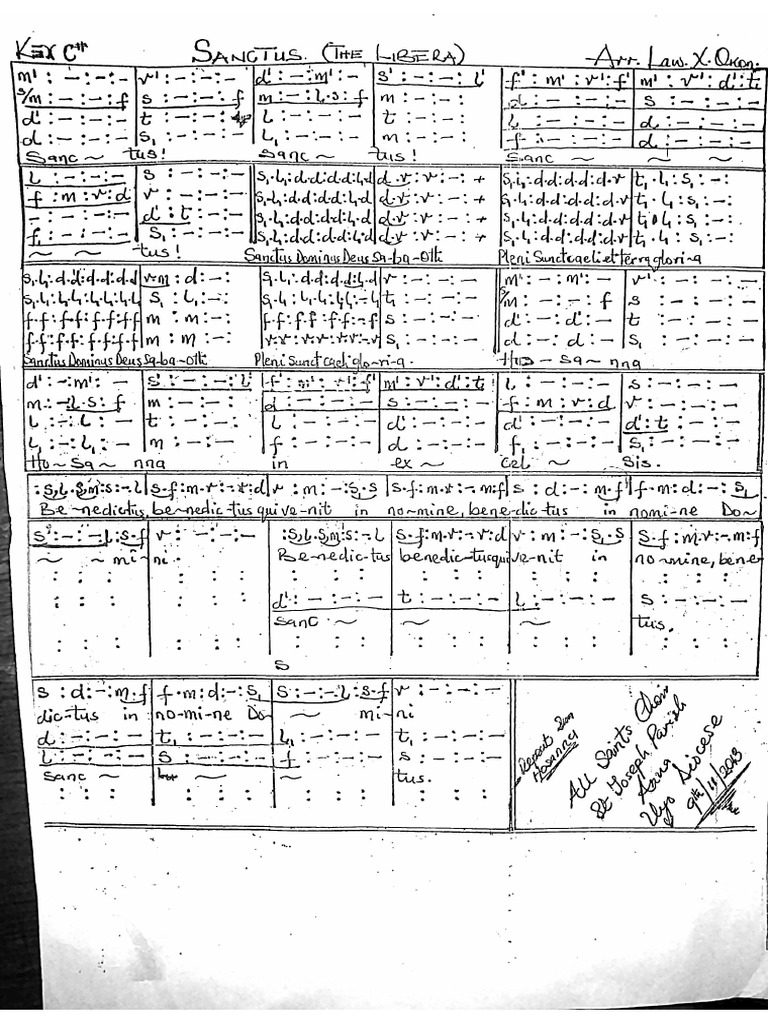 KEY C# SANCTUS. (THE LIBERA) Arr. Law. X. Okon.
m' : – : – : – | r' : – : – : – | d' : – : m' : – | s' : – : – : l' | f' : m' : r' : f' | m' : r' : d' : t
s/m : – : – : f | s : – : – : f | m : – : l·s : f | m : – : – : – | d : – : – : – | s : – : – : –
d' : – : – : – | t : – : – : – | l : – : – : – | t : – : – : – | l : – : – : – | d : – : – : –
d : – : – : – | s₁ : – : – : – | l₁ : – : – : – | m : – : – : – | f : – : – : – | d : – : – : –
Sanc ~ tus! Sanc ~ tus! Sanc ~ ~ ~
l : – : – : – | s : – : – : – | s₁·l₁:d·d:d·d:l₁·d | d·r : r : – : + | s₁·l₁:d·d:d·d:d·r | t₁·l₁ : s₁ : – :
f : m : r : d | r : – : – : – | s₁·l₁:d·d:d·d:l₁·d | d·r : r : – : + | s₁·l₁:d·d:d·d:d·r | t₁·l₁ : s₁ : – :
– : – : – : – | d' : t : – : – | s₁·l₁:d·d:d·d:l₁·d | d·r : r : – : + | s₁·l₁:d·d:d·d:d·r | t₁·l₁ : s₁ : – :
f₁ : – : – : – | s₁ : – : – : – | s₁·l₁:d·d:d·d:l₁·d | d·r : r : – : + | s₁·l₁:d·d:d·d:d·r | t₁·l₁ : s₁ : – :
~ ~ tus! Sanctus Dominus Deus Sa-ba-oth Pleni Sunt caeli et terra glori-a
s₁·l₁:d·d:d·d:d·d | r·m : d : – : | s₁·l₁:d·d:d·d:l₁·d | r : – : – : – | m' : – : m' : – | r' : – : – : –
s₁·l₁:l₁·l₁:l₁·l₁:l₁·l₁ | s₁ : l₁ : – : | s₁·l₁:l₁·l₁:l₁·l₁:–·l₁ | t₁ : – : – : – | s/m : – : – : f | s : – : – : –
f·f:f·f:f·f:f·f | m : m : – : | f·f:f·f:f·f:–·f | s : – : – : – | d' : – : d' : – | t : – : – : –
f·f:f·f:f·f:f·f | m : m : – : | r·r:r·r:r·r:–·r | s₁ : – : – : – | d : – : d : – | s₁ : – : – : –
Sanctus Dominus Deus Sa-ba-oth Pleni Sunt caeli glo-ri-a. Ho – Sa ~ nna
d' : – : m' : – | s' : – : – : l' | f' : m' : r' : f | m' : r' : d' : t | l : – : – : – | s : – : – : –
m : – : l·s : f | m : – : – : – | d : – : – : – | s : – : – : – | f : m : r : d | r : – : – : –
l : – : l : – | t : – : – : – | l : – : – : – | d' : – : – : – | d' : – : – : – | d' : t : – : –
l₁ : – : l₁ : – | m : – : – : – | f : – : – : – | d : – : – : – | f₁ : – : – : – | s₁ : – : – : –
Ho ~ Sa ~ nna in ex ~ cel ~ sis.
: s₁·l₁·s₁·m : s : –·l | s·f : m·r : – : –·r : d | r : m : – : s₁·s | s·f : m·r : – : m·f | s : d : – : m·f | f·m : d : – : s₁
Be-nedictus, benedic-tus qui ve-nit in no-mine, benedic-tus in nomi-ne Do-
s : – : – : l·s·f | r : – : – : – | : s₁·l·s₁·m : s : –·l | s·f : m·r : – : r·d | r : m : – : s₁·s | s·f : m·r : – : m·f
~ ~ mi- ni. Be-nedic-tus benedic-tus qui ve-nit in no-mine, bene
d' : – : – : – | t : – : – : – | l : – : – : – | s : – : – : –
Sanc ~ ~ ~ tus.
s
s : d : – : m·f | f·m : d : – : s₁ | s : – : – : l·s·f | r : – : – : –
dic-tus in no-mi-ne Do ~ mi- ni
d : – : – : – | t₁ : – : – : – | l₁ : – : – : – | t₁ : – : – : –
l : – : – : – | s : – : – : – | f : – : – : – | s : – : – : –
Sanc ~ ~ ~ tus.
Repeat
Hosanna
All Saints Choir
St Joseph Parish
Uyo Diocese
9th/11/2013